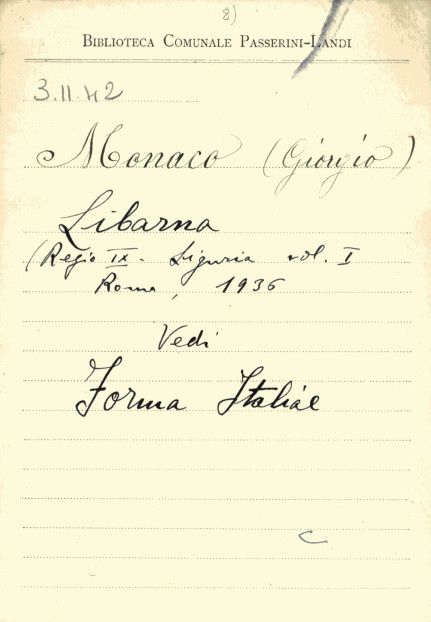 8)
BIBLIOTECA COMUNALE PASSERINI-LANDI
3.II.42
Monaco (Giorgio)
Libarna
(Regio IX - Liguria vol. I
Roma, 1936
Vedi
Forma Italiae
C